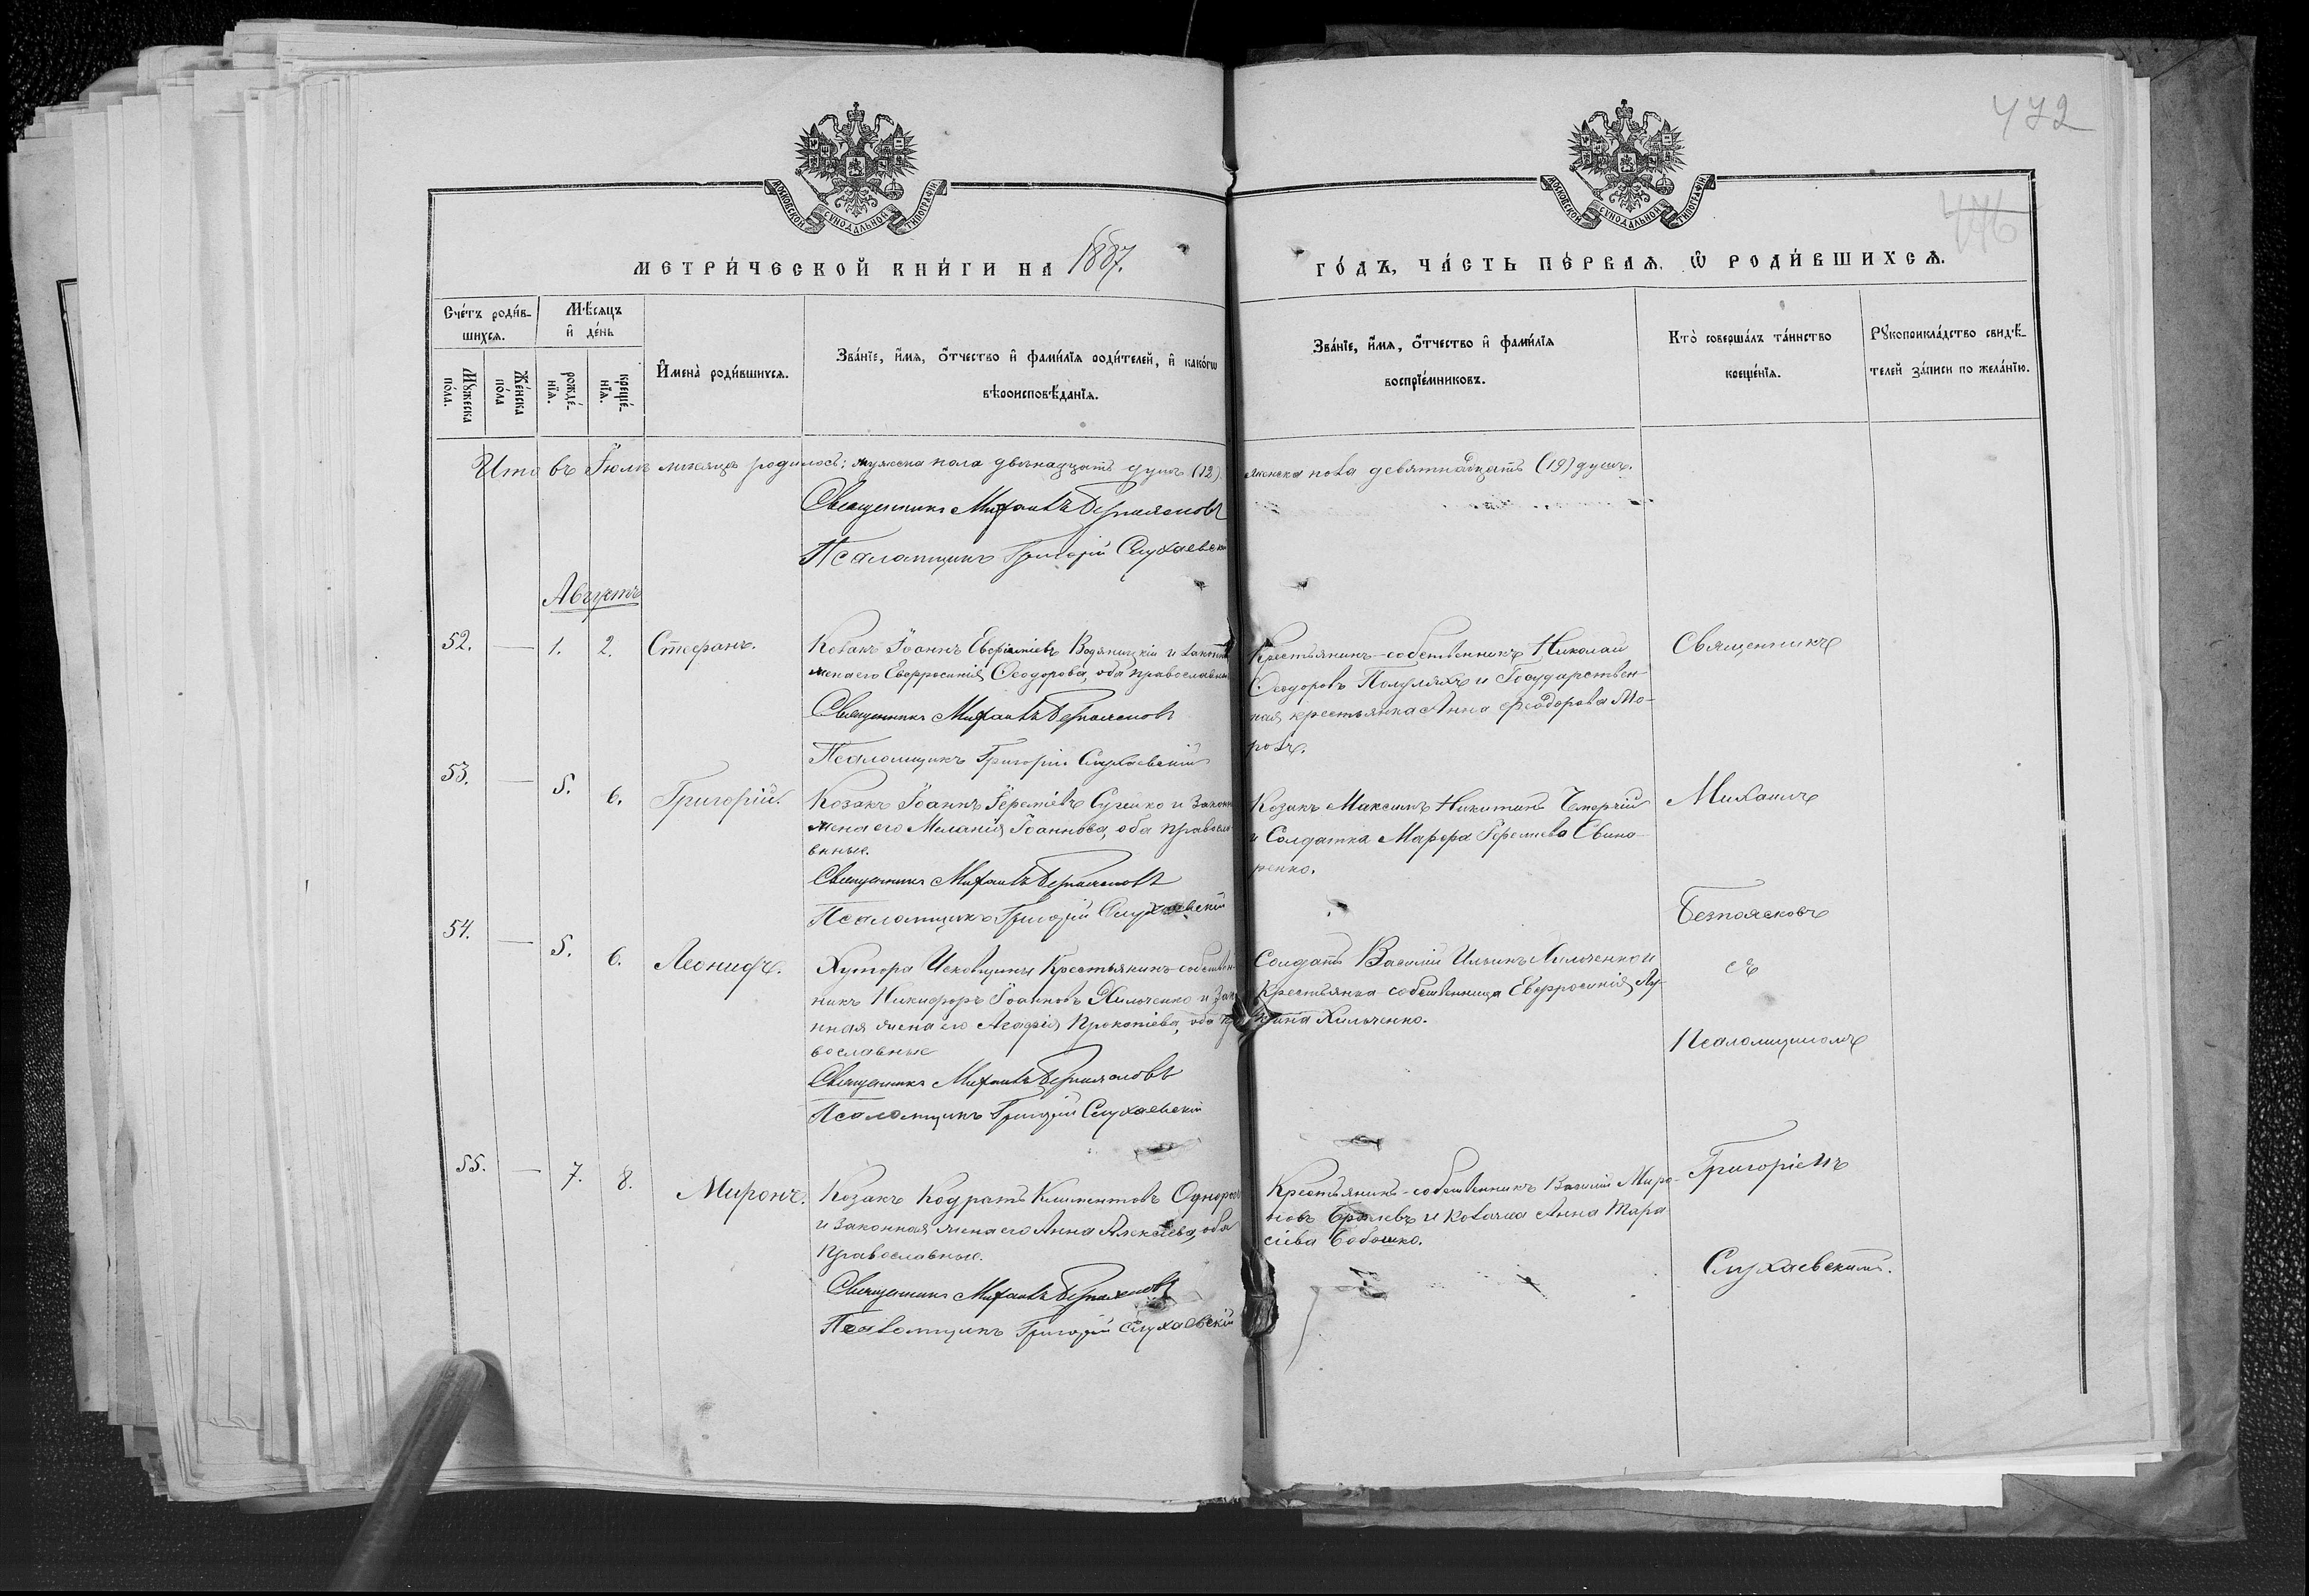 472
446
МОСКОВСКОЙ СѴНОДАЛЬНОЙ ТИПОГРАФІИ
МОСКОВСКОЙ СѴНОДАЛЬНОЙ ТИПОГРАФІИ
МЕТРИ́ЧЕСКОЙ КНИ́ГИ НА 1887.
ГО́ДЪ, ЧА́СТЬ ПЕ́РВАѦ, Ѿ РОДИ́ВШИХСѦ.
Сче́тъ роди́в-
шихсѧ.
Мꙋ́жеска
по́ла.
Же́нска
по́ла
Мѣ́сѧцъ
и҆ де́нь
рожде́-
нїѧ.
креще́-
нїѧ.
И҆мена̀ роди́вшихсѧ.
Зва́нїе, и҆́мѧ, ѻ҆́тчество и҆ фами́лїѧ роди́телей, и҆ како́гѡ
вѣроисповѣ́данїѧ.
Зва́нїе, и҆́мѧ, ѻ҆́тчество и҆ фами́лїѧ
воспрїе́мниковъ.
Кто̀ соверша́лъ та́инство
креще́нїѧ.
Рꙋкоприкла́дство свидѣ́-
телей за́писи по жела́нїю.
Итого въ Іюлѣ мѣсяцѣ родилось: мужеска пола двѣнадцать душъ (12)
женска пола девятнадцать (19) душъ.
Священникъ Михаилъ Безпоясковъ
Псаломщикъ Григорій Слухаевскій
Августъ
52. — 1. 2. Стефанъ.
Козакъ Іоаннъ Евфиміевъ Водяницкій и законная
жена его Евфросинія Ѳеодорова, оба православные
Священникъ Михаилъ Безпоясковъ
Псаломщикъ Григорій Слухаевскій
Крестьянинъ-собственникъ Николай
Ѳеодоровъ Полуляхъ и Государствен-
ная крестьянка Анна Ѳеодорова Мо-
розъ.
Священникъ
53. — 5. 6. Григорій.
Козакъ Іоаннъ Іереміевъ Сушко и законная
жена его Меланія Іоаннова, оба правосла-
вные.
Священникъ Михаилъ Безпоясковъ
Псаломщикъ Григорій Слухаевскій
Козакъ Максимъ Никитинъ
и Солдатка Марфа Іереміева Свина-
ренко.
Михаилъ
Безпоясковъ
54. — 5. 6. Леонидъ.
Хутора Исковщины Крестьянинъ-собствен-
никъ Никифоръ Іоанновъ Хильченко и зако-
нная жена его Агафія Прокопіева, оба пра-
вославные
Священникъ Михаилъ Безпоясковъ
Псаломщикъ Григорій Слухаевскій
Солдатъ Василій Ильинъ Хильченко и
Крестьянка-собственница Евфросинія Лу-
кина Хильченко.
съ
Псаломщикомъ
55. — 7. 8. Миронъ.
Козакъ Кодратъ Климентовъ
и законная жена его Анна Алексіева, оба
Православные.
Священникъ Михаилъ Безпоясковъ
Псаломщикъ Григорій Слухаевскій
Крестьянинъ-собственникъ Василій Миро-
новъ и Козачка Анна Тара-
сіева Бабошко.
Григоріемъ
Слухаевскимъ.